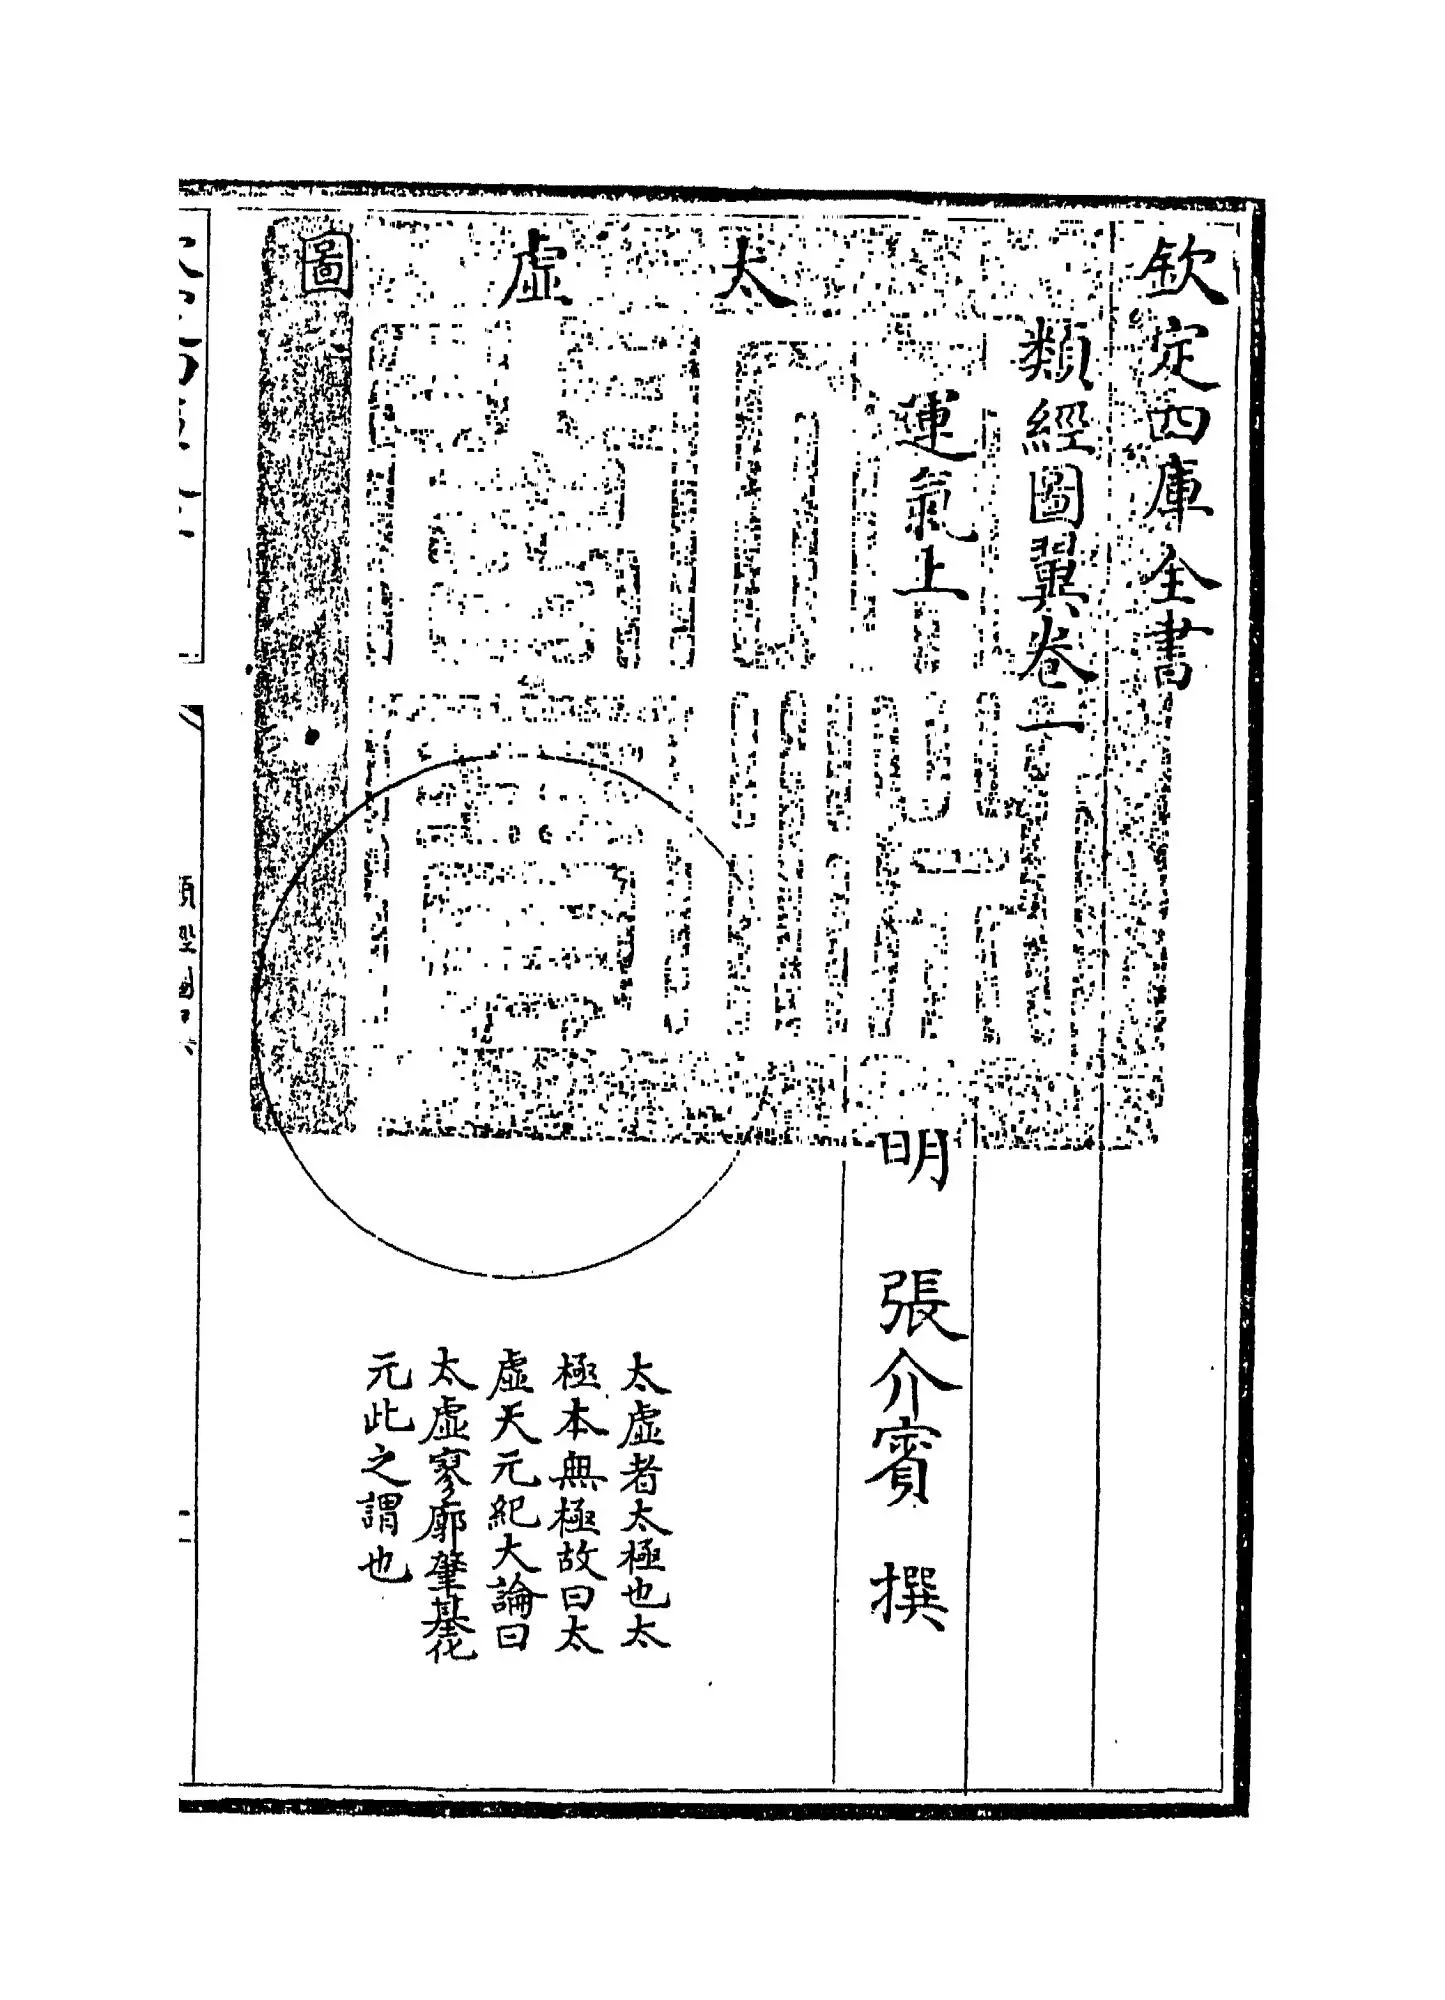 欽定四庫全書
類經圖翼卷一
運氣上
明 張介賓 撰
太虛圖
太虛者太極也太
極本無極故曰太
虛天元紀大論曰
太虛寥廓肇基化
元此之謂也